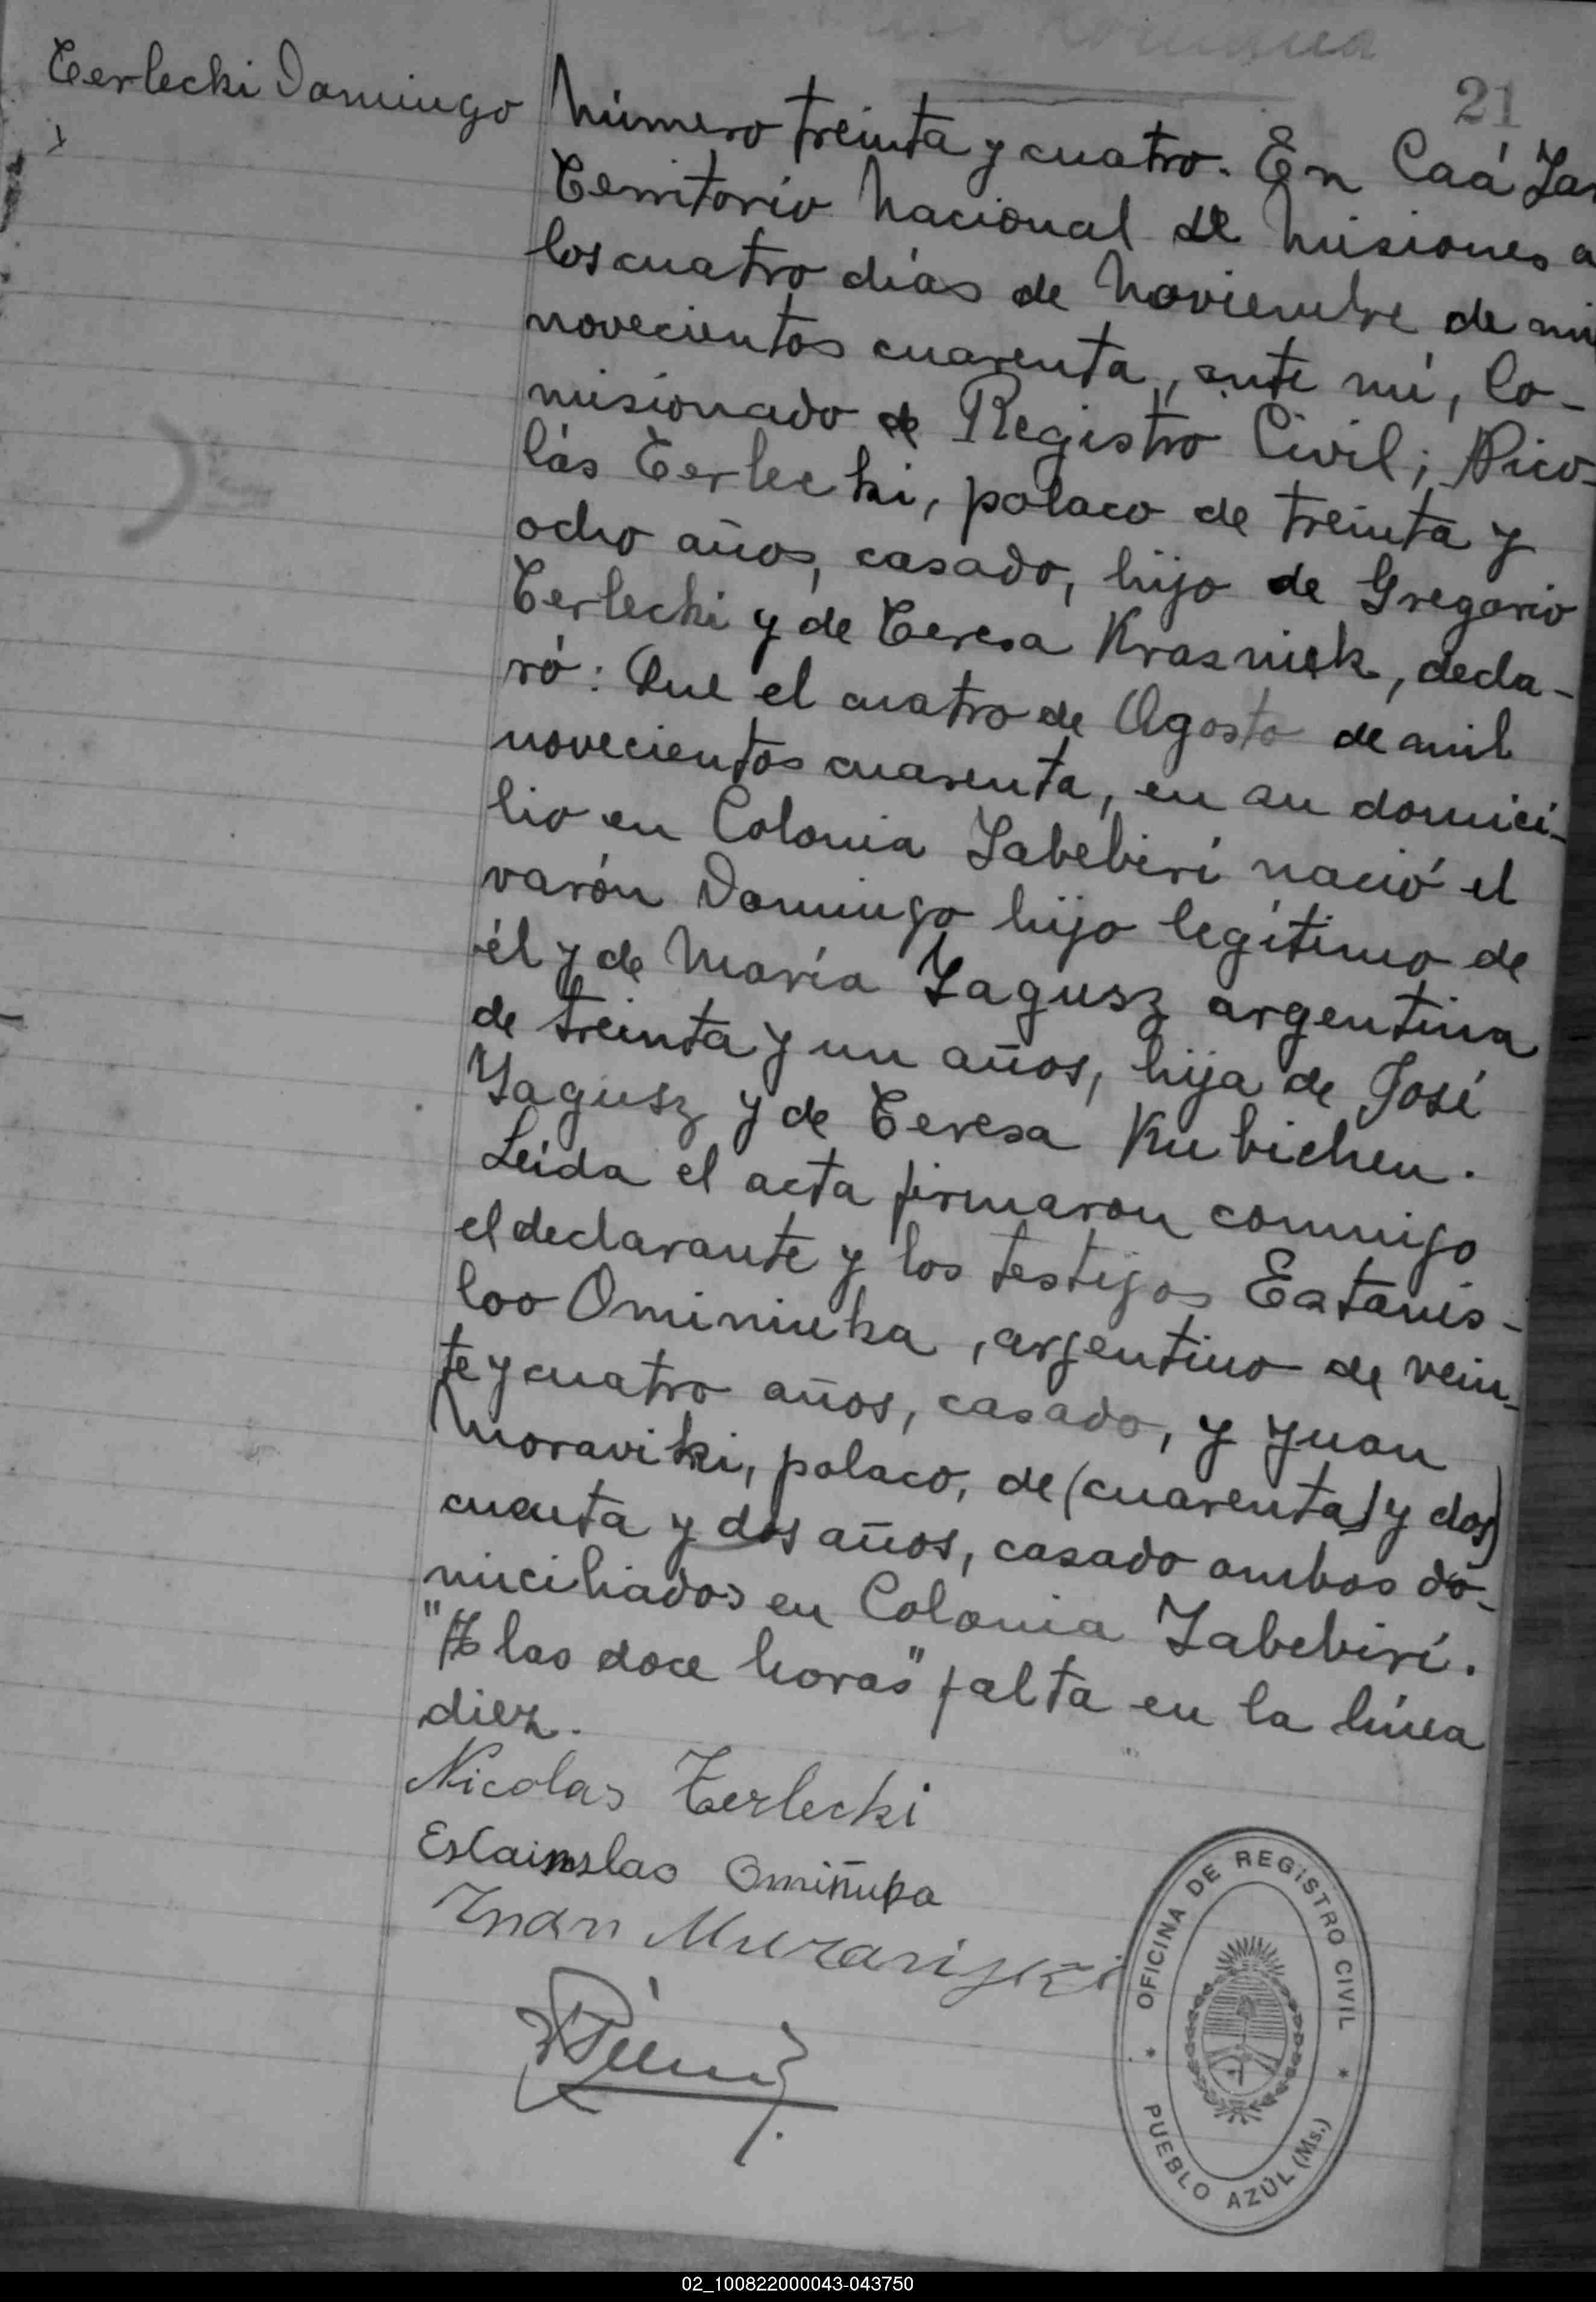 21
Terlecki Domingo
Número treinta y cuatro. En Caá Ya
Territorio Nacional de Misiones a
los cuatro días de Noviembre de mi
novecientos cuarenta, ante mí, Co-
misionado de Registro Civil; Nico-
lás Terlecki, polaco de treinta y
ocho años, casado, hijo de Gregorio
Terlecki y de Teresa Krasniek, decla-
ró: Que el cuatro de Agosto de mil
novecientos cuarenta, en su domici-
lio en Colonia Yabebirí nació el
varón Domingo hijo legítimo de
él y de María Yagusz argentina
de treinta y un años, hija de José
Yagusz y de Teresa Kubicheu.
Leída el acta firmaron conmigo
el declarante y los testigos Estanis-
loo Ominiuka, argentino de vein-
te y cuatro años, casado, y Yuan
Moraviki, polaco, de (cuarenta) y dos)
cuenta y dos años, casado ambos do-
miciliados en Colonia Yabebirí.
"A las doce horas" falta en la línea
diez.
Nicolas Terlecki
Omiñuka
Juan Murarijski
OFICINA DE REGISTRO CIVIL
PUEBLO AZÚL (Ms.)
02_100822000043-043750